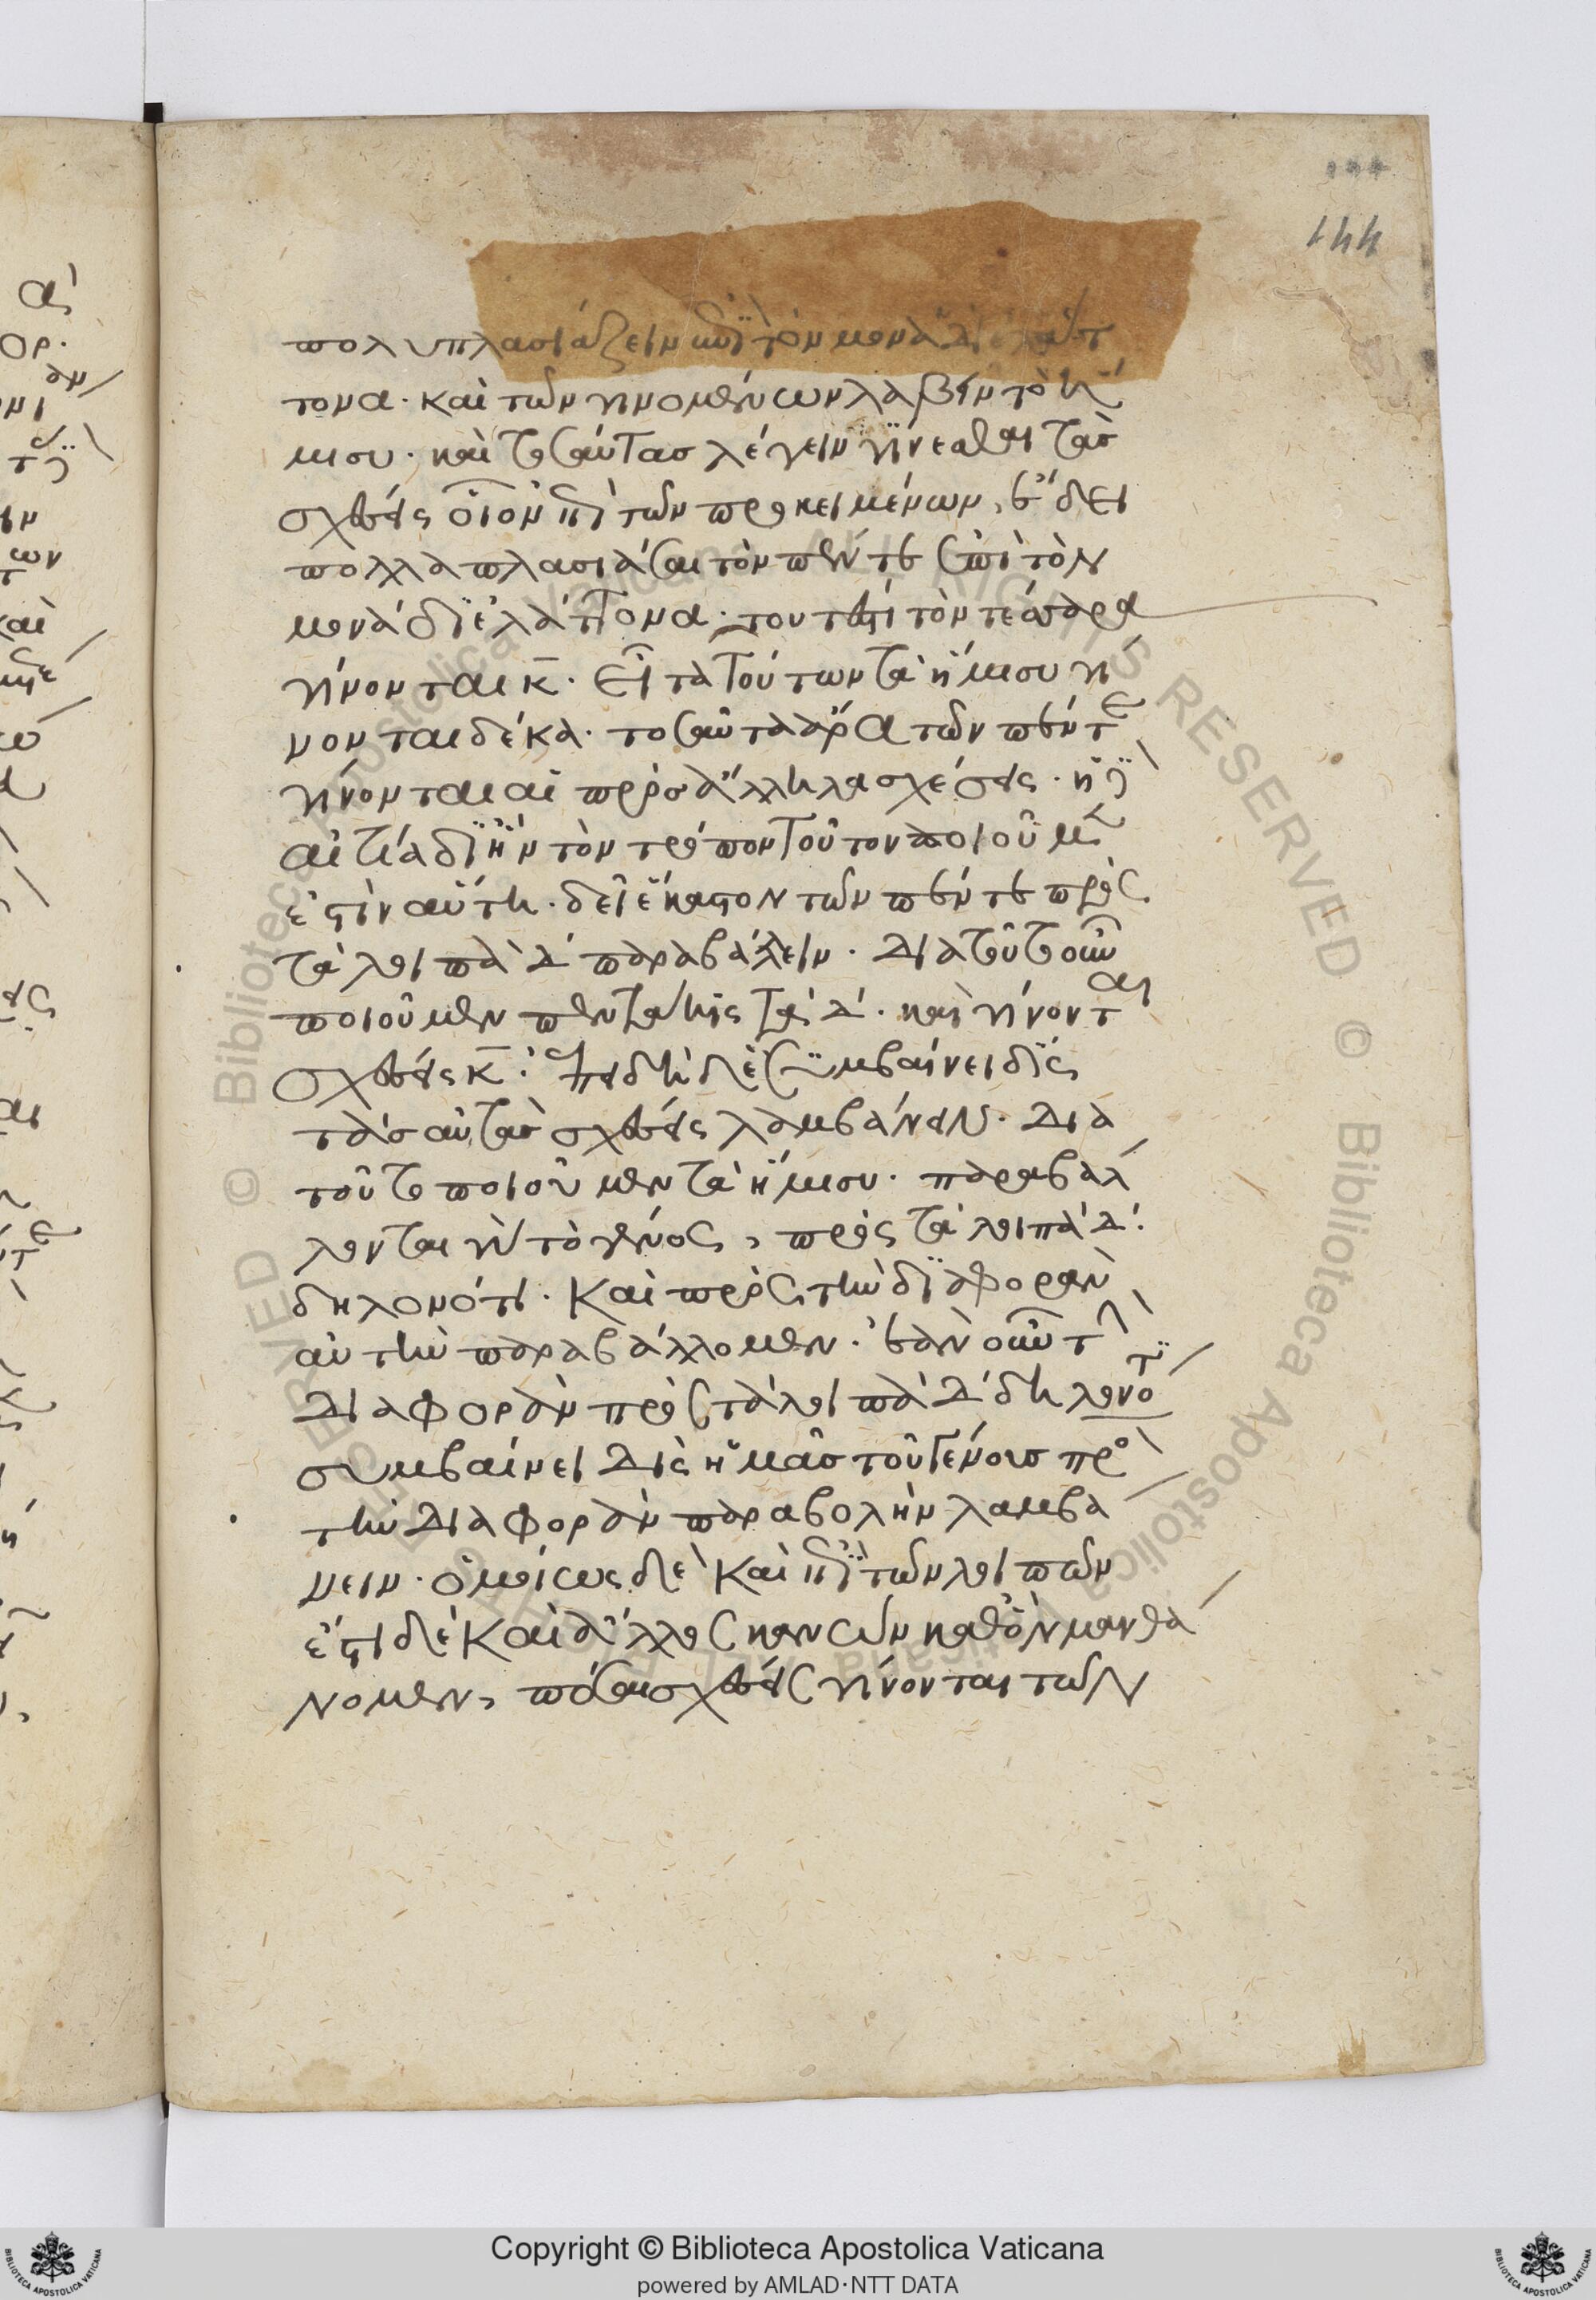 144
πολυπλασιάζειν ἐπὶ τὸν μονάδι ἐλάττ
τονα· καὶ τῶν γινομένων λαβεῖν τὸ ἥ
μισυ· καὶ τοσαύτας λέγειν γίνεσθαι τὰς
σχέσεις οἷον ἐπὶ τῶν προκειμένων, ε δεῖ
πολλαπλασιάσαι τὸν πέντε ἐπὶ τὸν
μονάδι ἐλάττονα· τουτέστι τὸν τέσσαρα
γίνονται κ̄· Εἶτα τούτων τὰ ἥμισυ γί
νονται δέκα· τοσαῦτα ἄρα τῶν πέντε
γίνονται αἱ πρὸς ἄλληλα σχέσεις· ἡ
αἰτία δι' ἣν τὸν τρόπον τοῦτον ποιοῦμ
ἐστὶν αὕτη· δεῖ ἕκαστον τῶν πέντε πρὸς
τὰ λοιπὰ δ παραβάλειν· Διατοῦτο οὖν
ποιοῦμεν πεντάκις τὰ δ· καὶ γίνονται
σχέσεις κ̄· Ἐπειδὴ δὲ συμβαίνει δὶς
τὰς αὐτὰς σχέσεις λαμβάνειν· Δια
τοῦτο ποιοῦμεν τὰ ἥμισυ· παραβάλ
λονται γὰρ τὸ γένος, πρὸς τὰ λοιπὰ δ
δηλονότι· Καὶ πρὸς τὴν διαφορὰν
αὐτὴν παραβάλλομεν· ἐὰν οὖν τὴν
Διαφορὰν πρὸς τὰ λοιπὰ δ δηλονότι
συμβαίνει Δὶς ἡμᾶς τοῦ γένους πρὸ
τὴν Διαφορὰν παραβολὴν λαμβά
νειν· ὁμοίως δὲ Καὶ ἐπὶ τῶν λοιπῶν
ἔστι δὲ Καὶ ἄλλος κανὼν καθ' ὃν μανθά
νομεν, πόσαι σχέσεις γίνονται τῶν
Copyright © Biblioteca Apostolica Vaticana
powered by AMLAD·NTT DATA